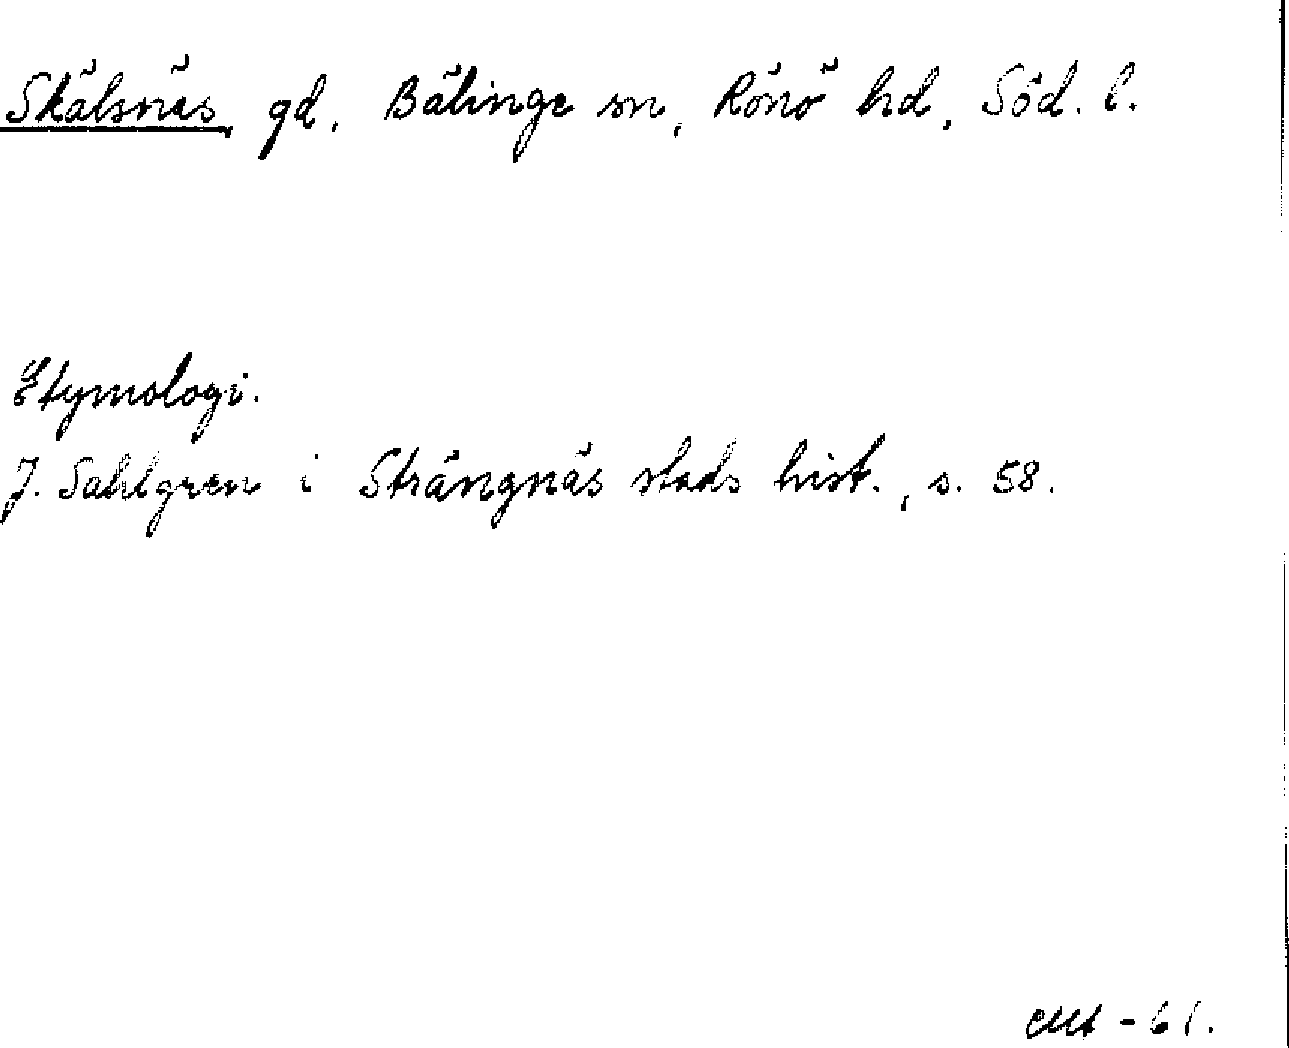 Skälsnäs, gd, Bälinge sn, Rönö hd, Söd. l.
Etymologi.
J. Sahlgren i Strängnäs stads hist., s. 58.
-61.